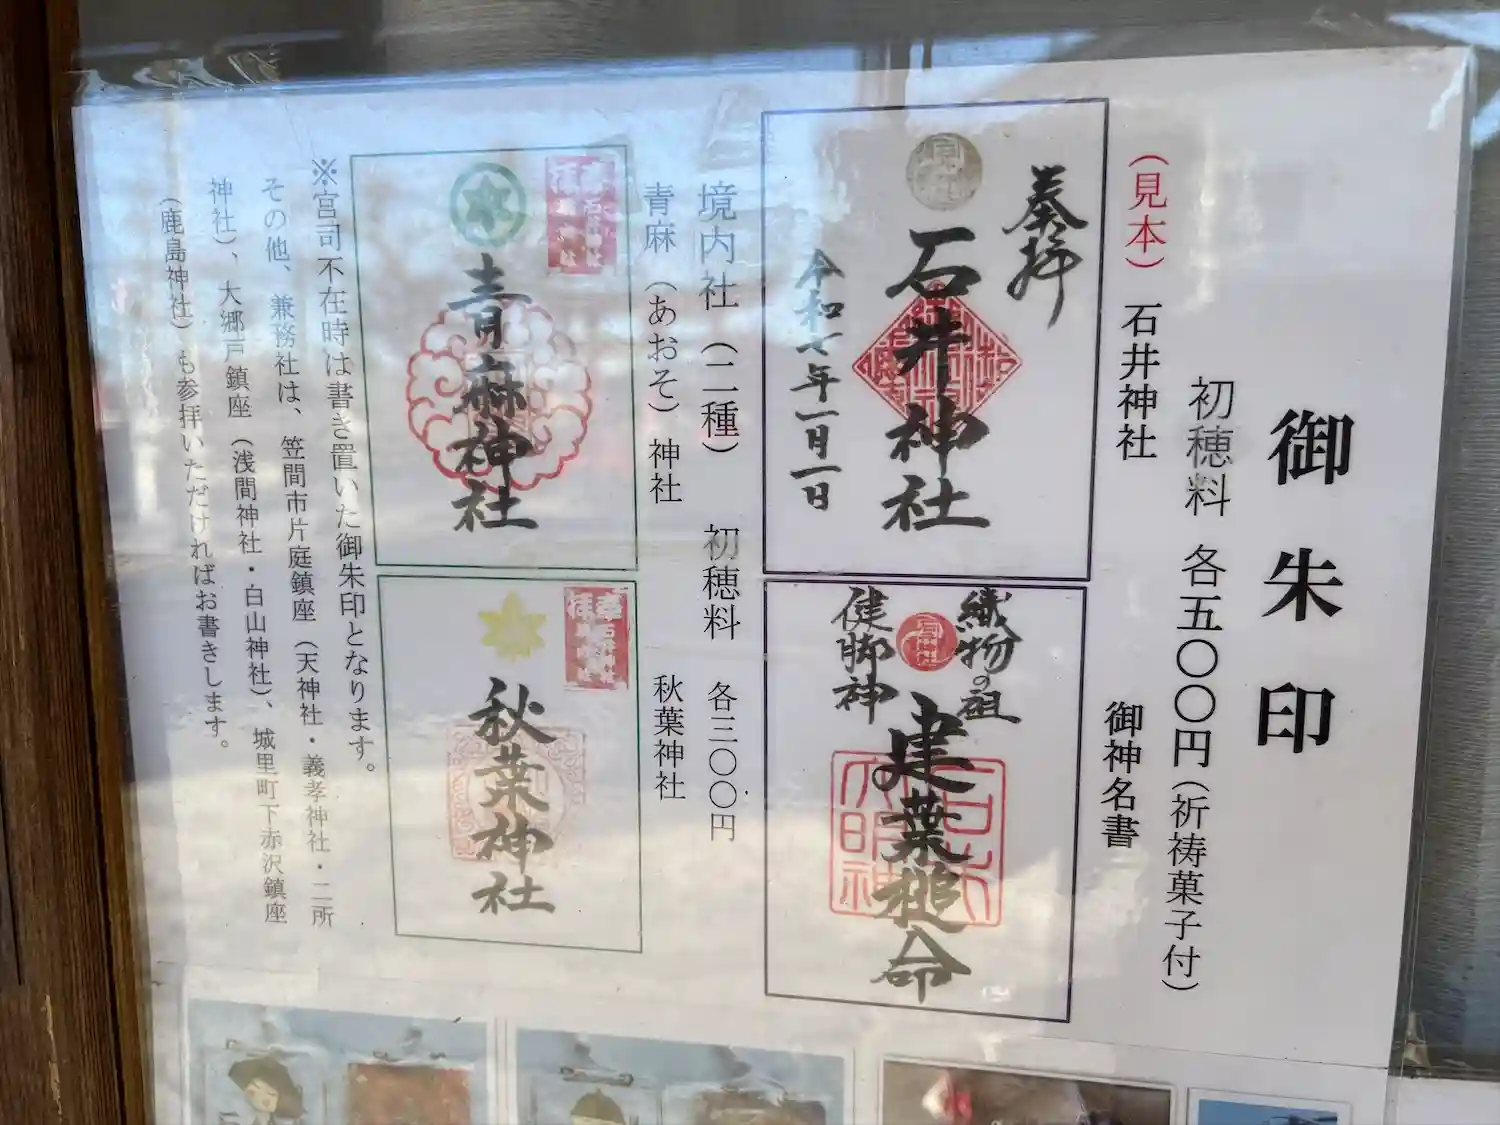 御朱印
初穂料 各五〇〇円(祈祷菓子付)
(見本) 石井神社 御神名書
奉拝
石井神社
令和七年一月一日
織物の祖
建葉槌命
健脚神
境内社(二種) 初穂料 各三〇〇円
青麻(あおそ)神社 秋葉神社
青麻神社
秋葉神社
※宮司不在時は書き置いた御朱印となります。
その他、兼務社は、笠間市片庭鎮座(天神社・義孝神社・二所
神社)、大郷戸鎮座(浅間神社・白山神社)、城里町下赤沢鎮座
(鹿島神社)も参拝いただければお書きします。